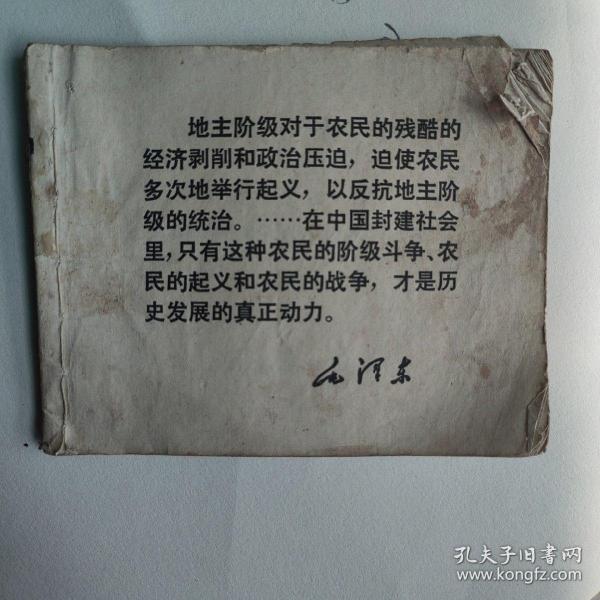 地主阶级对于农民的残酷的
经济剥削和政治压迫，迫使农民
多次地举行起义，以反抗地主阶
级的统治。……在中国封建社会
里，只有这种农民的阶级斗争、农
民的起义和农民的战争，才是历
史发展的真正动力。
毛泽东
孔夫子旧书网
www.kongfz.com